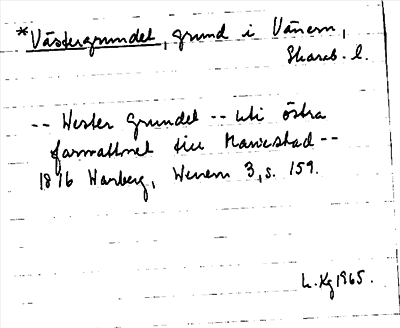 *Västergrundet, grund i Vänern,
Skarab. l.
-- Wester Grundet -- uti östra
farwattnet till Mariestad --
1816 Warberg, Wenern 3, s. 159.
L. Kg 1965.